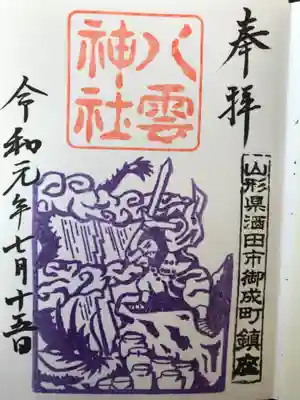 奉拝
山形県酒田市御成町鎮座
八雲神社
令和元年七月十五日